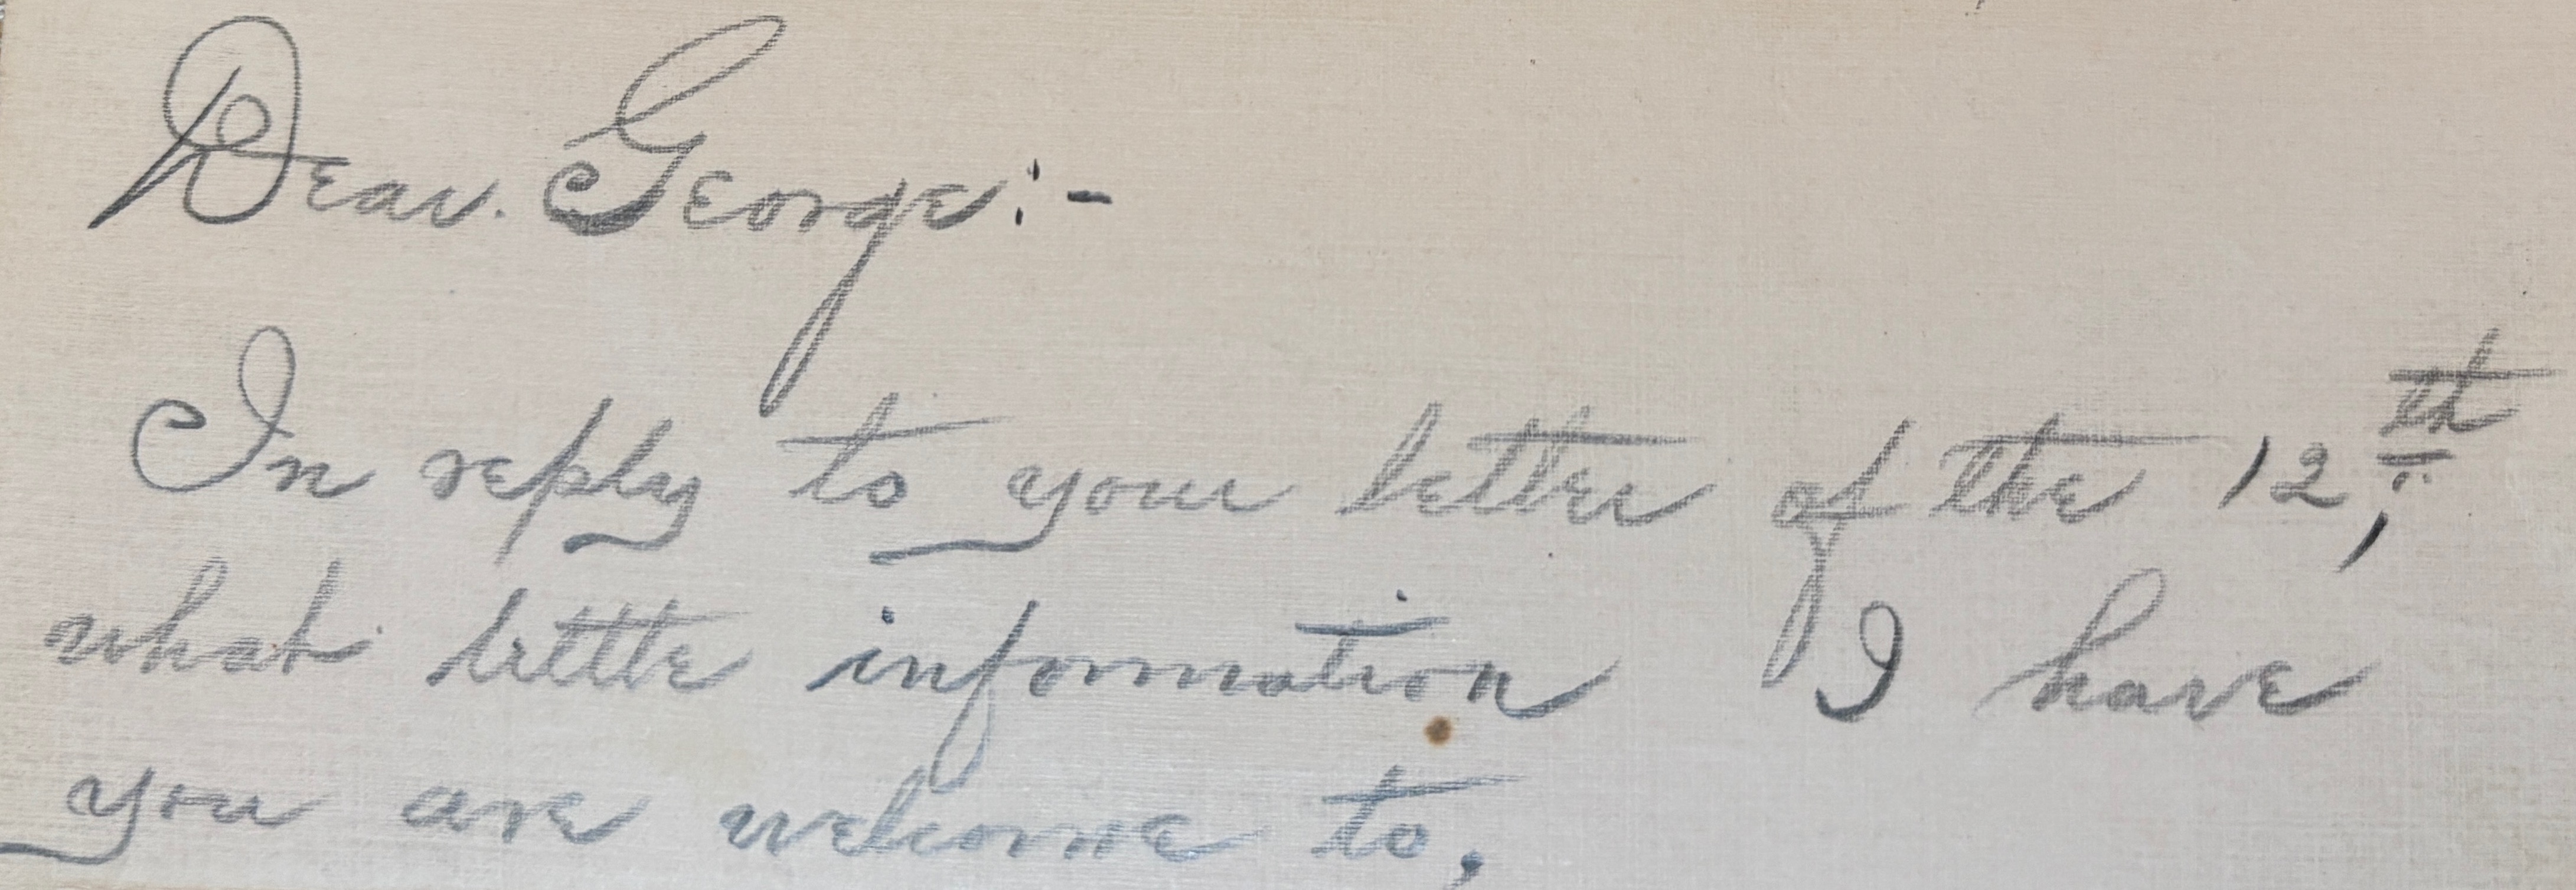 Dear. George:-
In reply to your letter of the 12th,
what little information I have
you are welcome to,